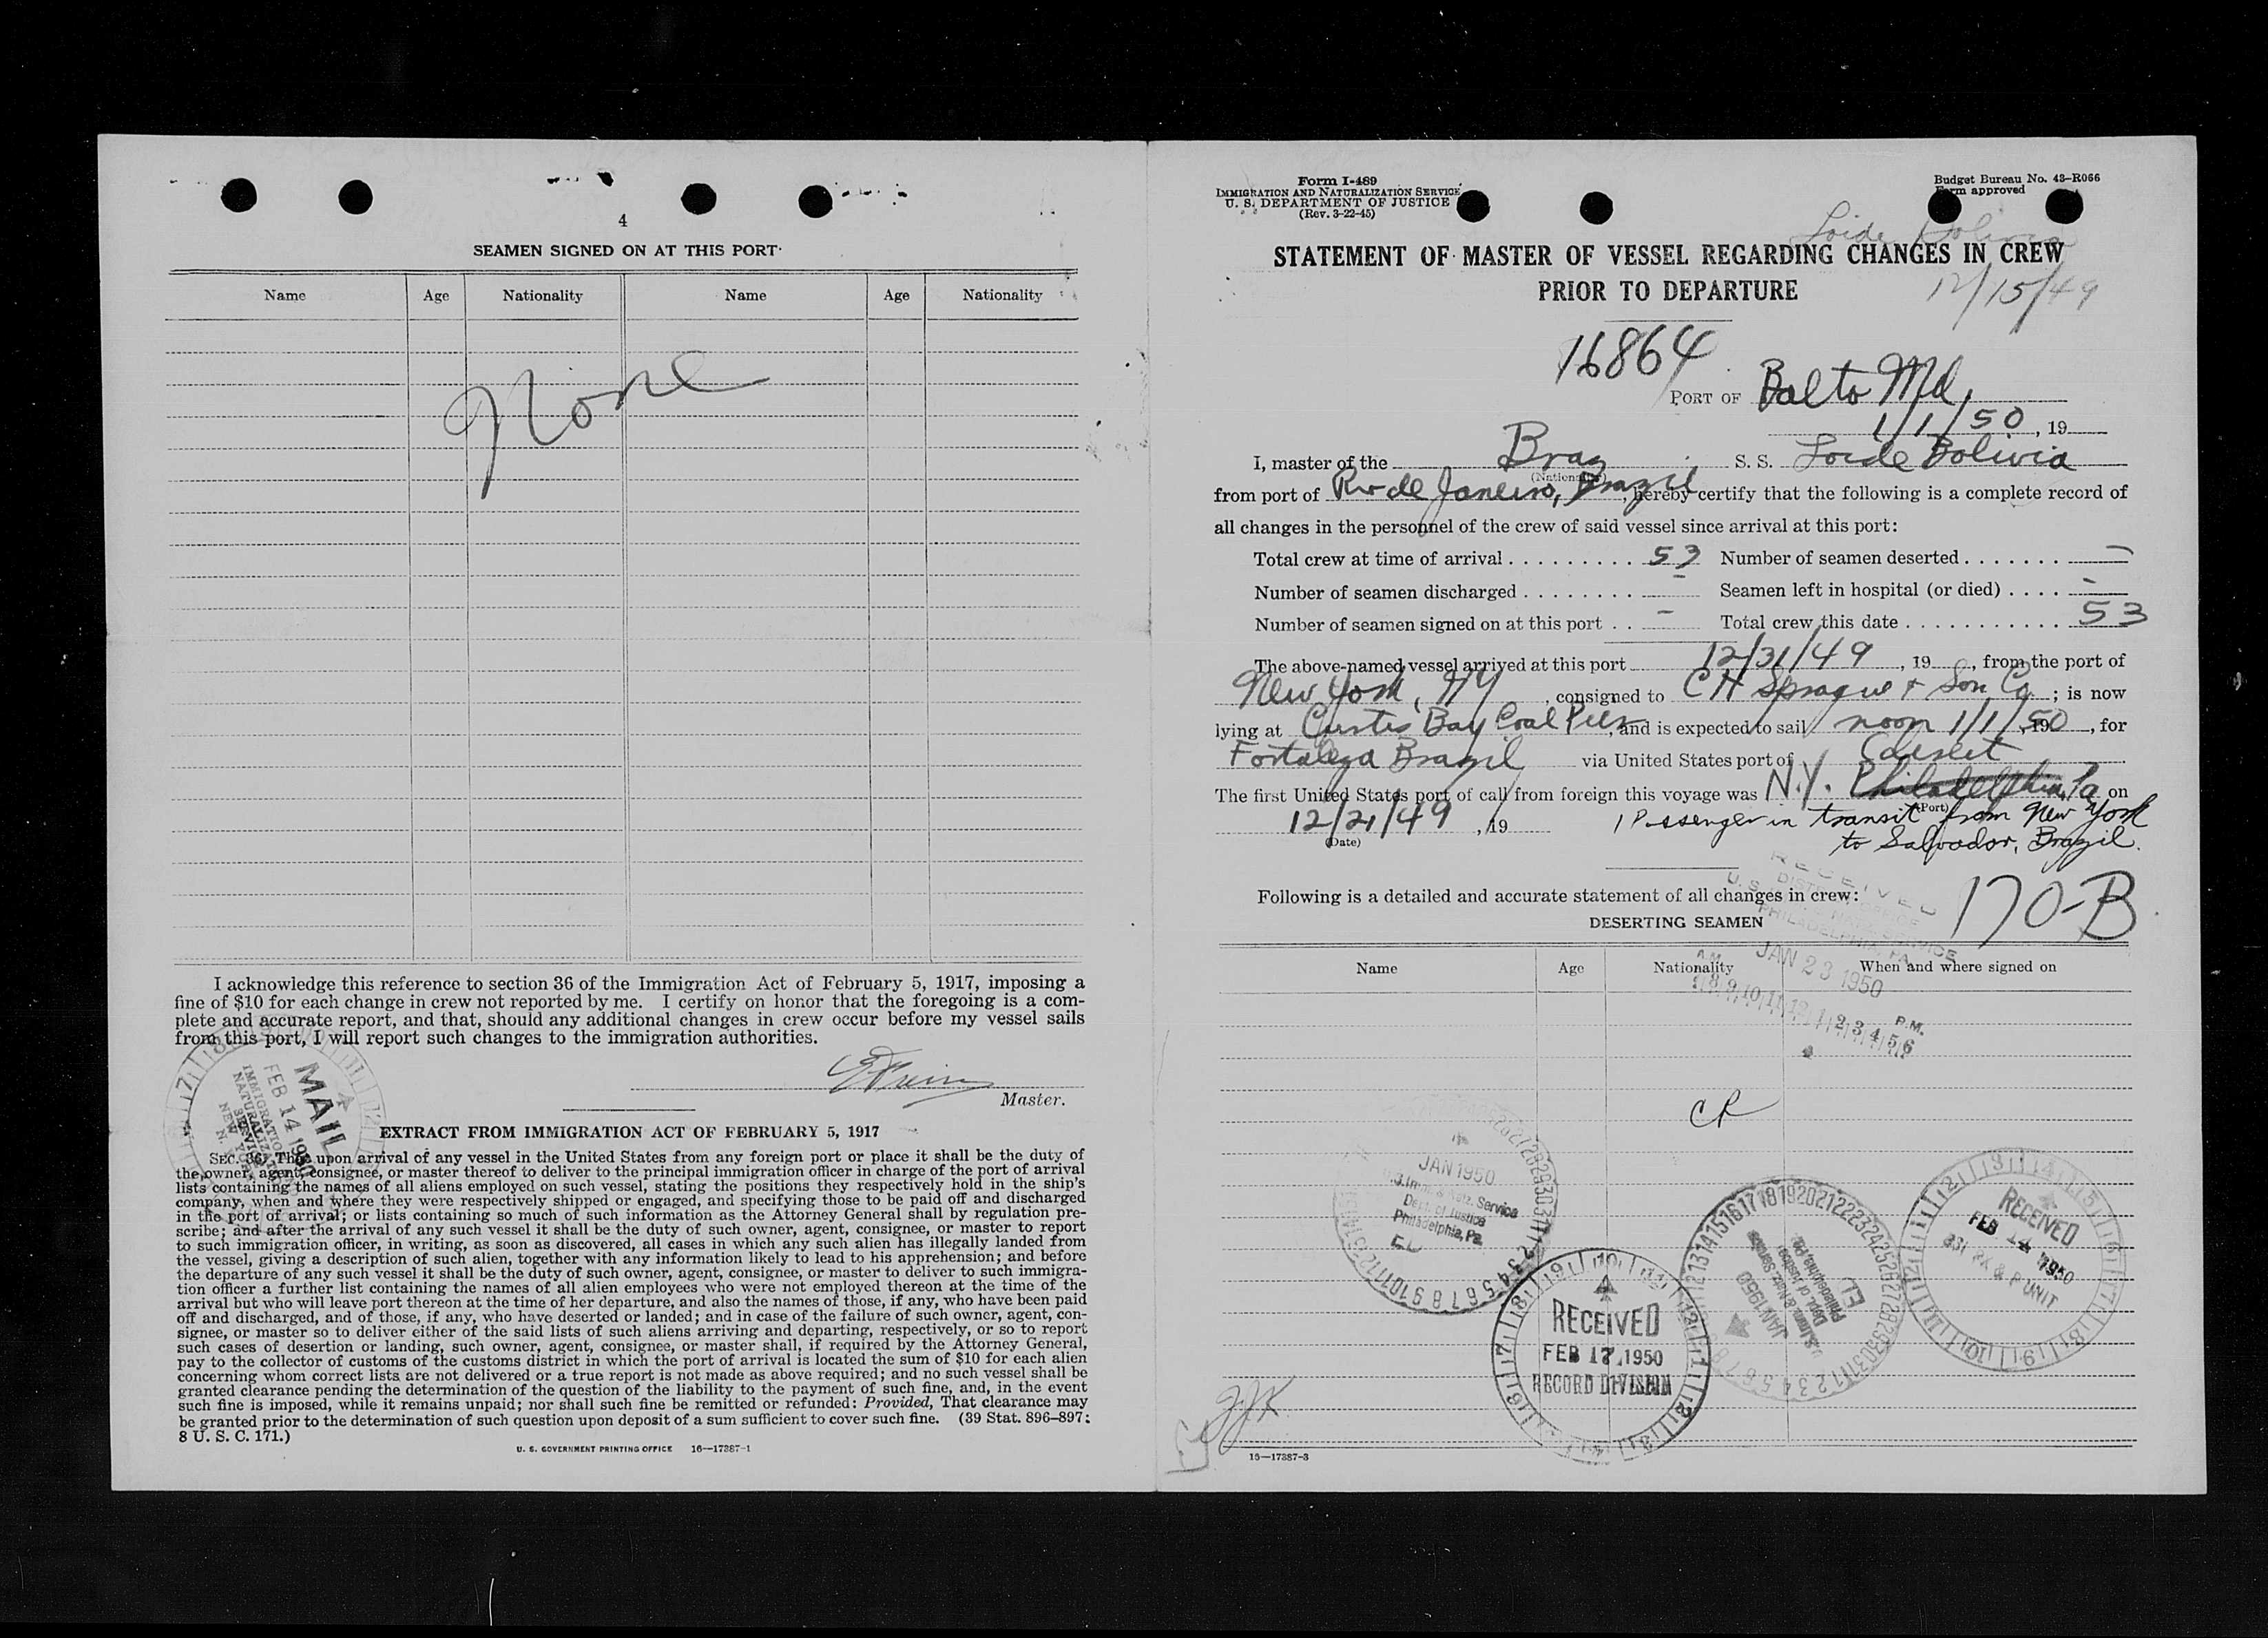 4
SEAMEN SIGNED ON AT THIS PORT
Name Age Nationality Name Age Nationality
None
I acknowledge this reference to section 36 of the Immigration Act of February 5, 1917, imposing a
fine of $10 for each change in crew not reported by me. I certify on honor that the foregoing is a com-
plete and accurate report, and that, should any additional changes in crew occur before my vessel sails
from this port, I will report such changes to the immigration authorities.
Master.
MAIL
FEB 14 1950
IMMIGRATION
NATURALIZATION
SERVICE
NEW YORK
N.
EXTRACT FROM IMMIGRATION ACT OF FEBRUARY 5, 1917
SEC. 36. That upon arrival of any vessel in the United States from any foreign port or place it shall be the duty of
the owner, agent, consignee, or master thereof to deliver to the principal immigration officer in charge of the port of arrival
lists containing the names of all aliens employed on such vessel, stating the positions they respectively hold in the ship's
company, when and where they were respectively shipped or engaged, and specifying those to be paid off and discharged
in the port of arrival; or lists containing so much of such information as the Attorney General shall by regulation pre-
scribe; and after the arrival of any such vessel it shall be the duty of such owner, agent, consignee, or master to report
to such immigration officer, in writing, as soon as discovered, all cases in which any such alien has illegally landed from
the vessel, giving a description of such alien, together with any information likely to lead to his apprehension; and before
the departure of any such vessel it shall be the duty of such owner, agent, consignee, or master to deliver to such immigra-
tion officer a further list containing the names of all alien employees who were not employed thereon at the time of the
arrival but who will leave port thereon at the time of her departure, and also the names of those, if any, who have been paid
off and discharged, and of those, if any, who have deserted or landed; and in case of the failure of such owner, agent, con-
signee, or master so to deliver either of the said lists of such aliens arriving and departing, respectively, or so to report
such cases of desertion or landing, such owner, agent, consignee, or master shall, if required by the Attorney General,
pay to the collector of customs of the customs district in which the port of arrival is located the sum of $10 for each alien
concerning whom correct lists are not delivered or a true report is not made as above required; and no such vessel shall be
granted clearance pending the determination of the question of the liability to the payment of such fine, and, in the event
such fine is imposed, while it remains unpaid; nor shall such fine be remitted or refunded: Provided, That clearance may
be granted prior to the determination of such question upon deposit of a sum sufficient to cover such fine. (39 Stat. 896–897;
8 U. S. C. 171.)
U. S. GOVERNMENT PRINTING OFFICE 16—17387-1
Form I-489
IMMIGRATION AND NATURALIZATION SERVICE
U. S. DEPARTMENT OF JUSTICE
(Rev. 3-22-45)
Budget Bureau No. 43-R066
Form approved
Loide Bolivia
STATEMENT OF MASTER OF VESSEL REGARDING CHANGES IN CREW
PRIOR TO DEPARTURE
12/15/49
16864
PORT OF Balto Md,
1/1/50, 19
I, master of the Braz S. S. Loide Bolivia
(Nationality)
from port of Rio de Janeiro, Brazil, hereby certify that the following is a complete record of
all changes in the personnel of the crew of said vessel since arrival at this port:
Total crew at time of arrival . . . . . . . . . . 53 Number of seamen deserted . . . . . . . —
Number of seamen discharged . . . . . . . . — Seamen left in hospital (or died) . . . . —
Number of seamen signed on at this port . . — Total crew this date . . . . . . . . . . . . 53
The above-named vessel arrived at this port 12/31/49, 19, from the port of
New York, NY, consigned to C H Sprague + Son Co; is now
lying at Curtis Bay Coal Pier, and is expected to sail noon 1/1/50, 19, for
Fortaleza Brazil via United States port of
The first United States port of call from foreign this voyage was N.Y. Philadelphia, Pa on
(Port)
12/21/49, 19 1 Passenger in transit from New York
(Date)
to Salvador, Brazil.
Following is a detailed and accurate statement of all changes in crew:
170-B
DESERTING SEAMEN
RECEIVED
DISTRICT OFFICE
PHILADELPHIA, PA
JAN 23 1950
A.M. P.M.
8 9 10 11 12 1 2 3 4 5 6
Name Age Nationality When and where signed on
CR
JAN 1950
U.S. Imm. & Natz. Service
Dept. of Justice
Philadelphia, Pa.
RECEIVED
FEB 17 1950
RECORD DIVISION
JAN 1950
U.S. Imm. & Natz. Service
Dept. of Justice
Philadelphia, Pa.
EL
RECEIVED
FEB 14 1950
& P UNIT
JJK
16—17387-3